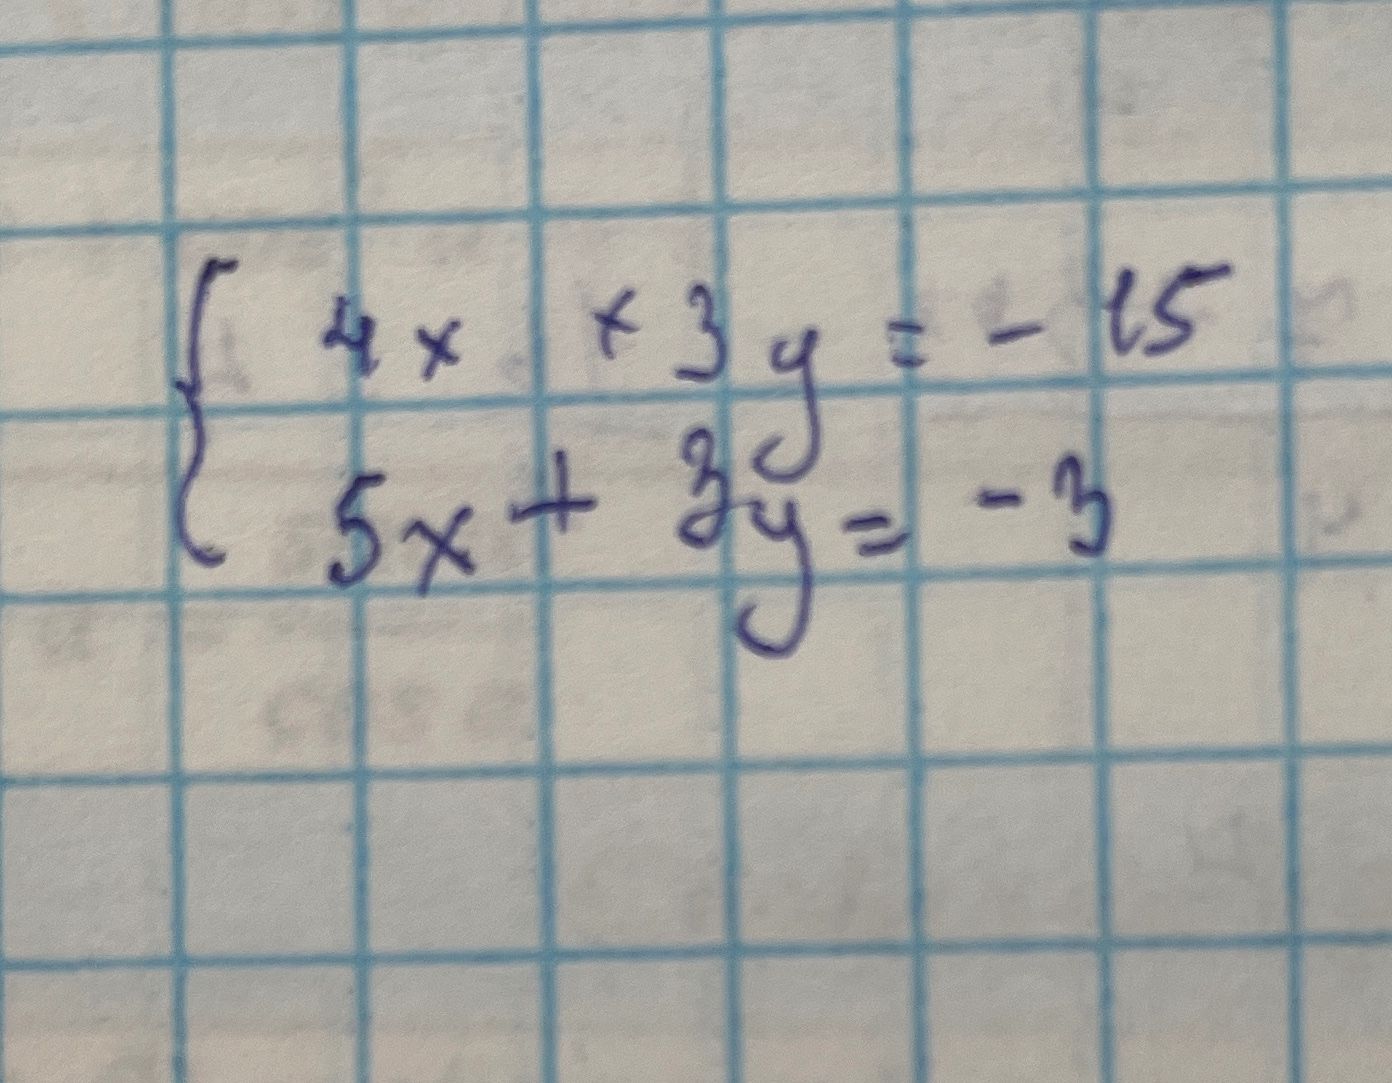 { 4x + 3y = - 15
5x + 3y = - 3